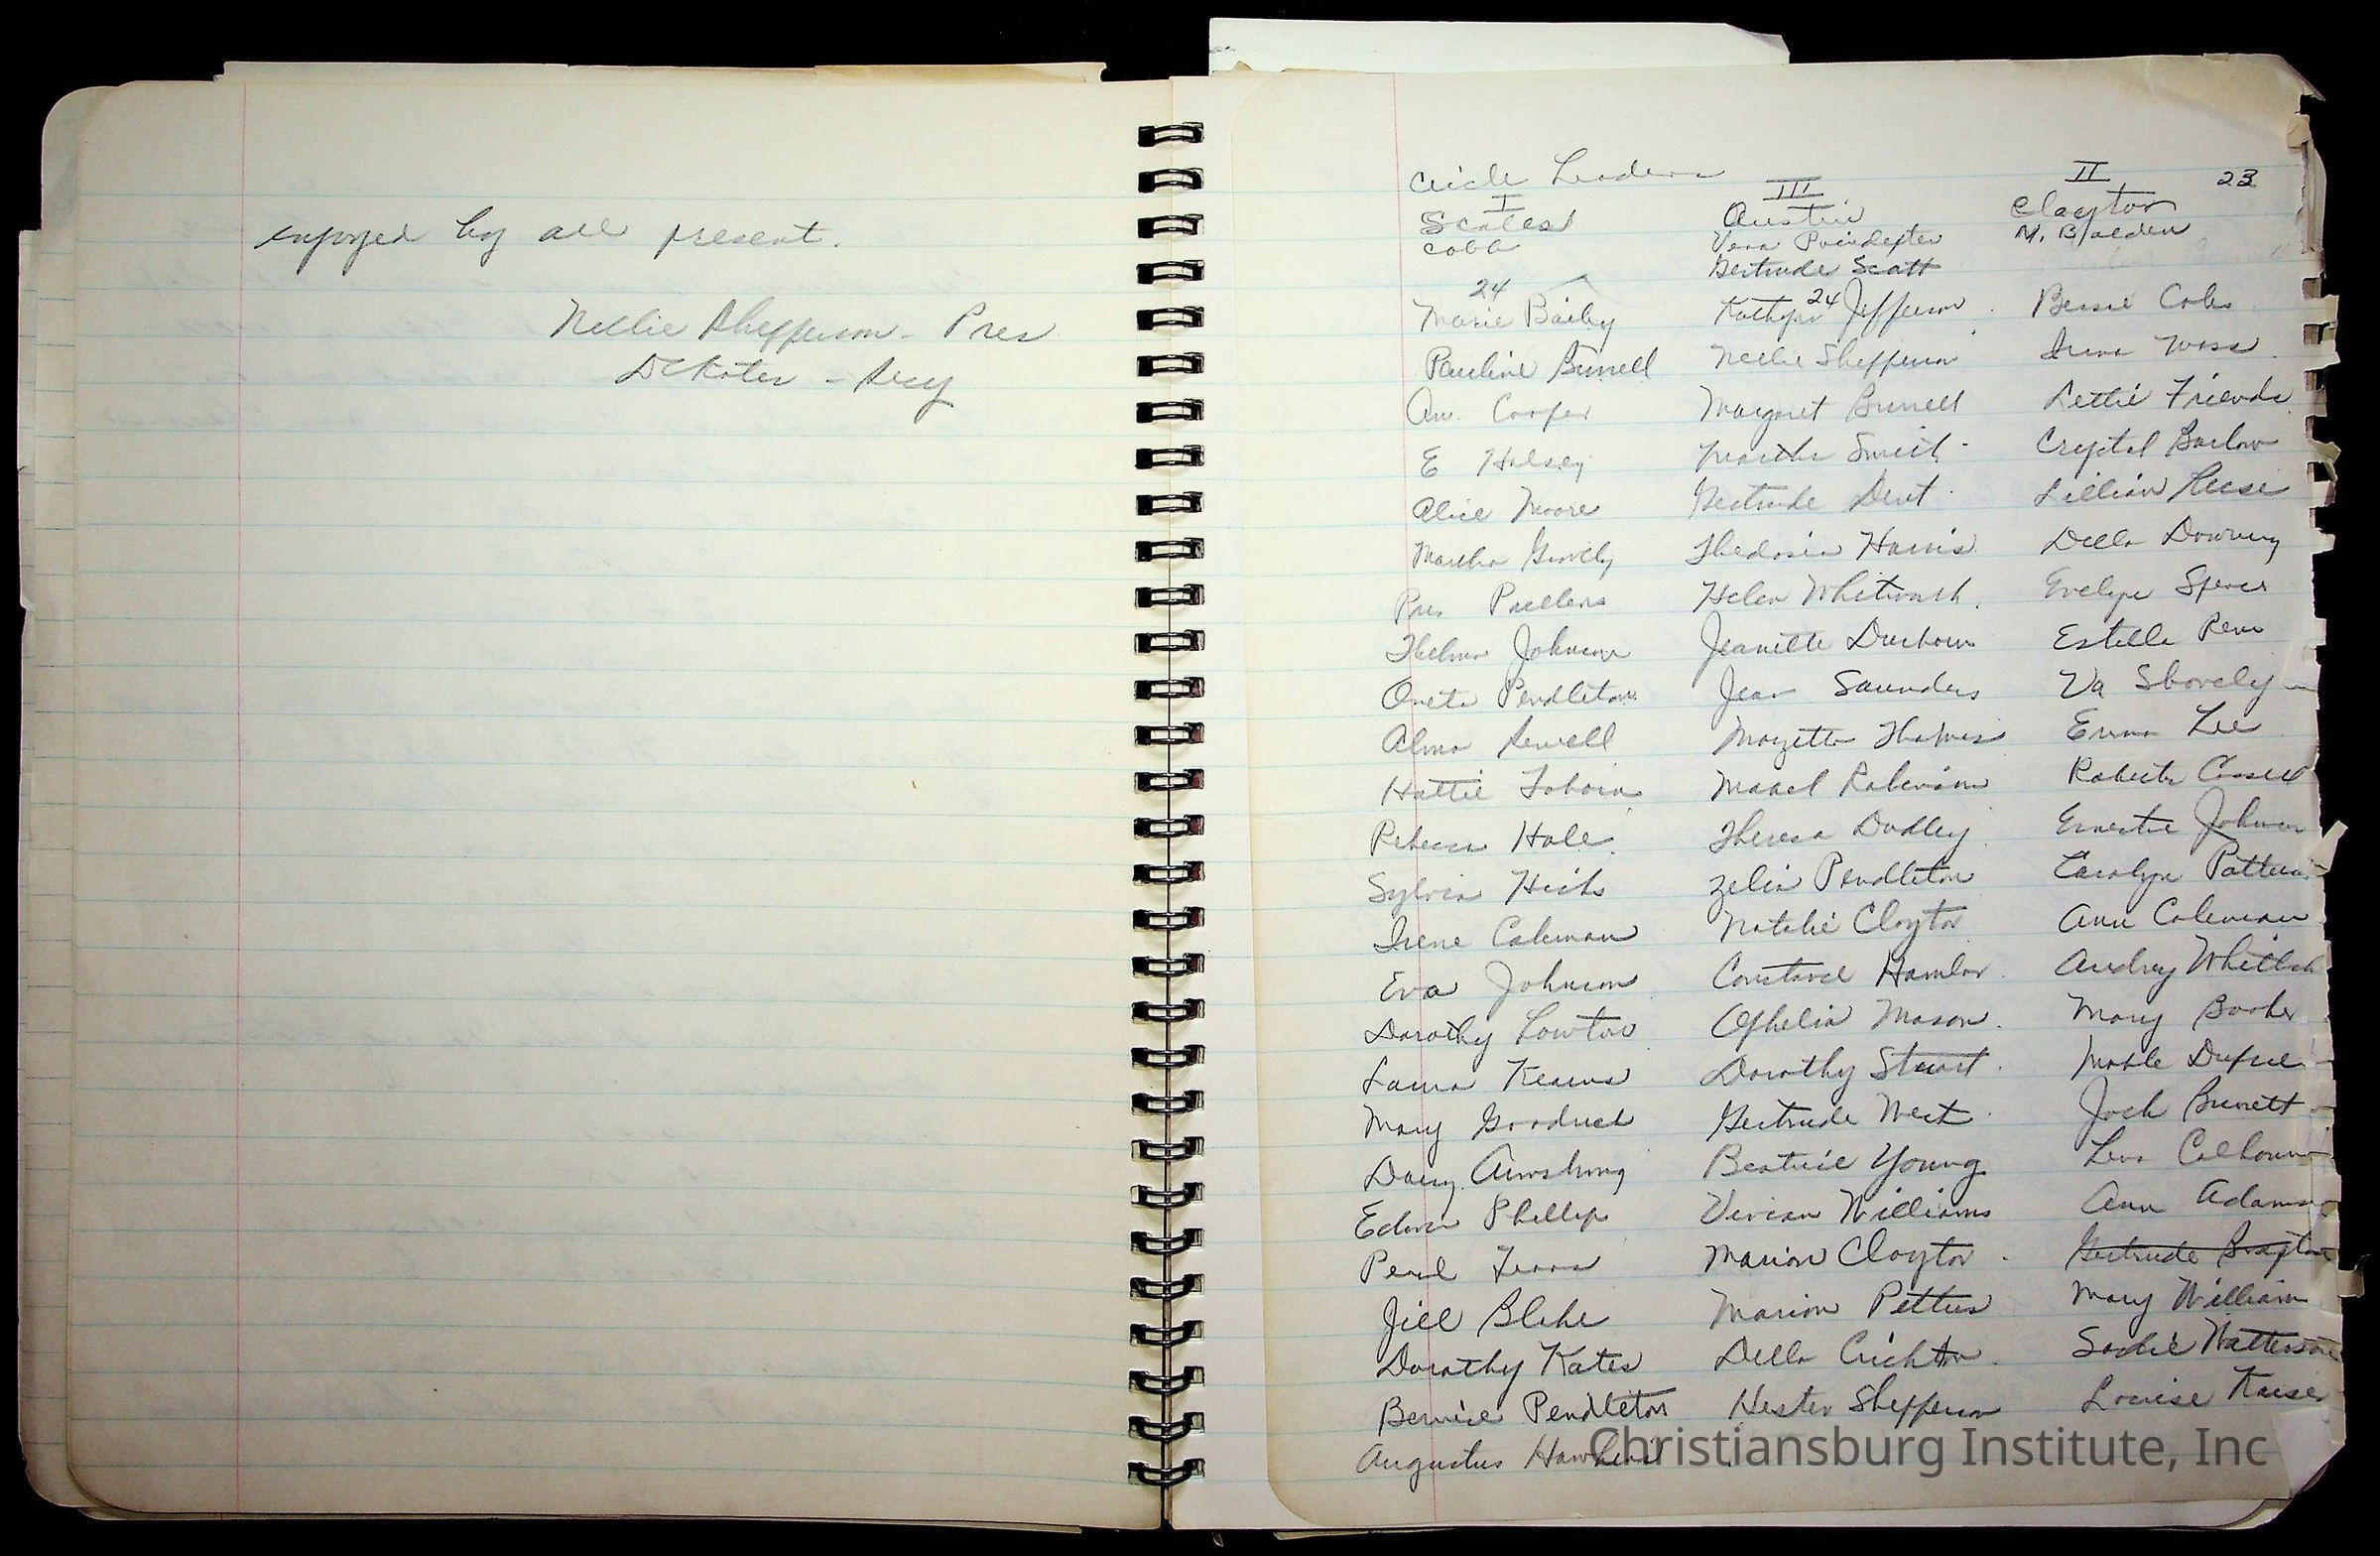 enjoyed by all present.
Nellie Shefferson - Pres
D C Kates - Secy
Circle Leaders
I III II 23
Scales Austin Claytor
Cobb Vera Poindexter M. Bolden
Gertrude Scott
24 24
Marie Bailey Kathryn Jefferson Bessie Coles
Pauline Burrell Nellie Shefferson Irene Moss
Cooper Margaret Burrell Lettie Friends
E Halsey Martha Smith Crystal Barlow
Alice Moore Gertrude Dent Lillian Reese
Martha Gravely Thedosia Harris Della Downey
Helen Whitworth Evelyn Spencer
Thelma Johnson Jeanette Durham Estelle Penn
Oneta Pendleton Jean Saunders Va Shovely
Alma Sewell Mozetta Thomas Emma Lee
Hattie Mabel Robinson Roberta Cassell
Rebecca Hale Theresa Dudley Ernestine Johnson
Sylvia Hicks Zelia Pendleton Carolyn Patterson
Irene Coleman Natalie Claytor Ann Coleman
Eva Johnson Constance Hamlar Audrey Whitlock
Dorothy Lawton Ophelia Mason Mary Booker
Laura Kearns Dorothy Stuart Mable Dupree
Mary Goodrich Gertrude West Jack Burnett
Daisy Armstrong Beatrice Young Lena Calhoun
Edwin Phillips Vivian Williams Ann Adams
Pearl Marion Claytor Gertrude Braxton
Jill Blake Marion Pettus Mary William
Dorothy Kates Della Crichton Sadie Watterson
Bernice Pendleton Hester Shefferson Louise Kaiser
Augustus Hawkins
Christiansburg Institute, Inc